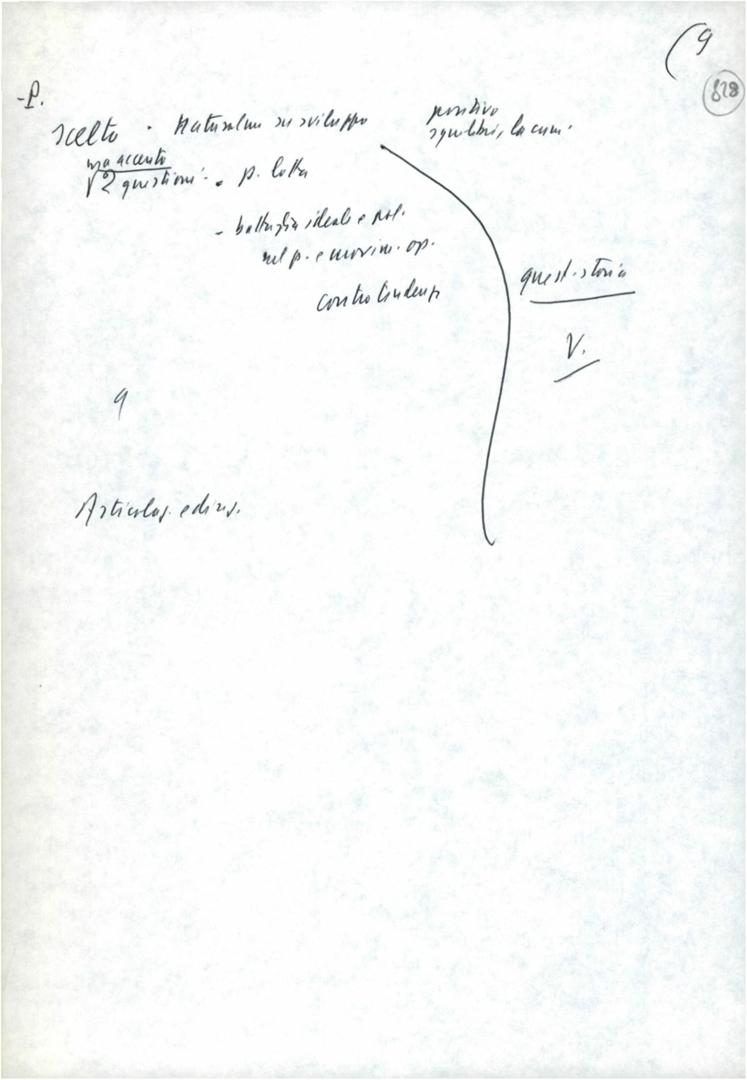 (9
828
-P.
scelto · Naturalm su sviluppo positivo
squilibri, lacune.
ma accento
2 questioni: . p. lotta
- battaglia ideale e pol.
nel p. e movim. op.
contro tendenz
quest. storia
V.
9